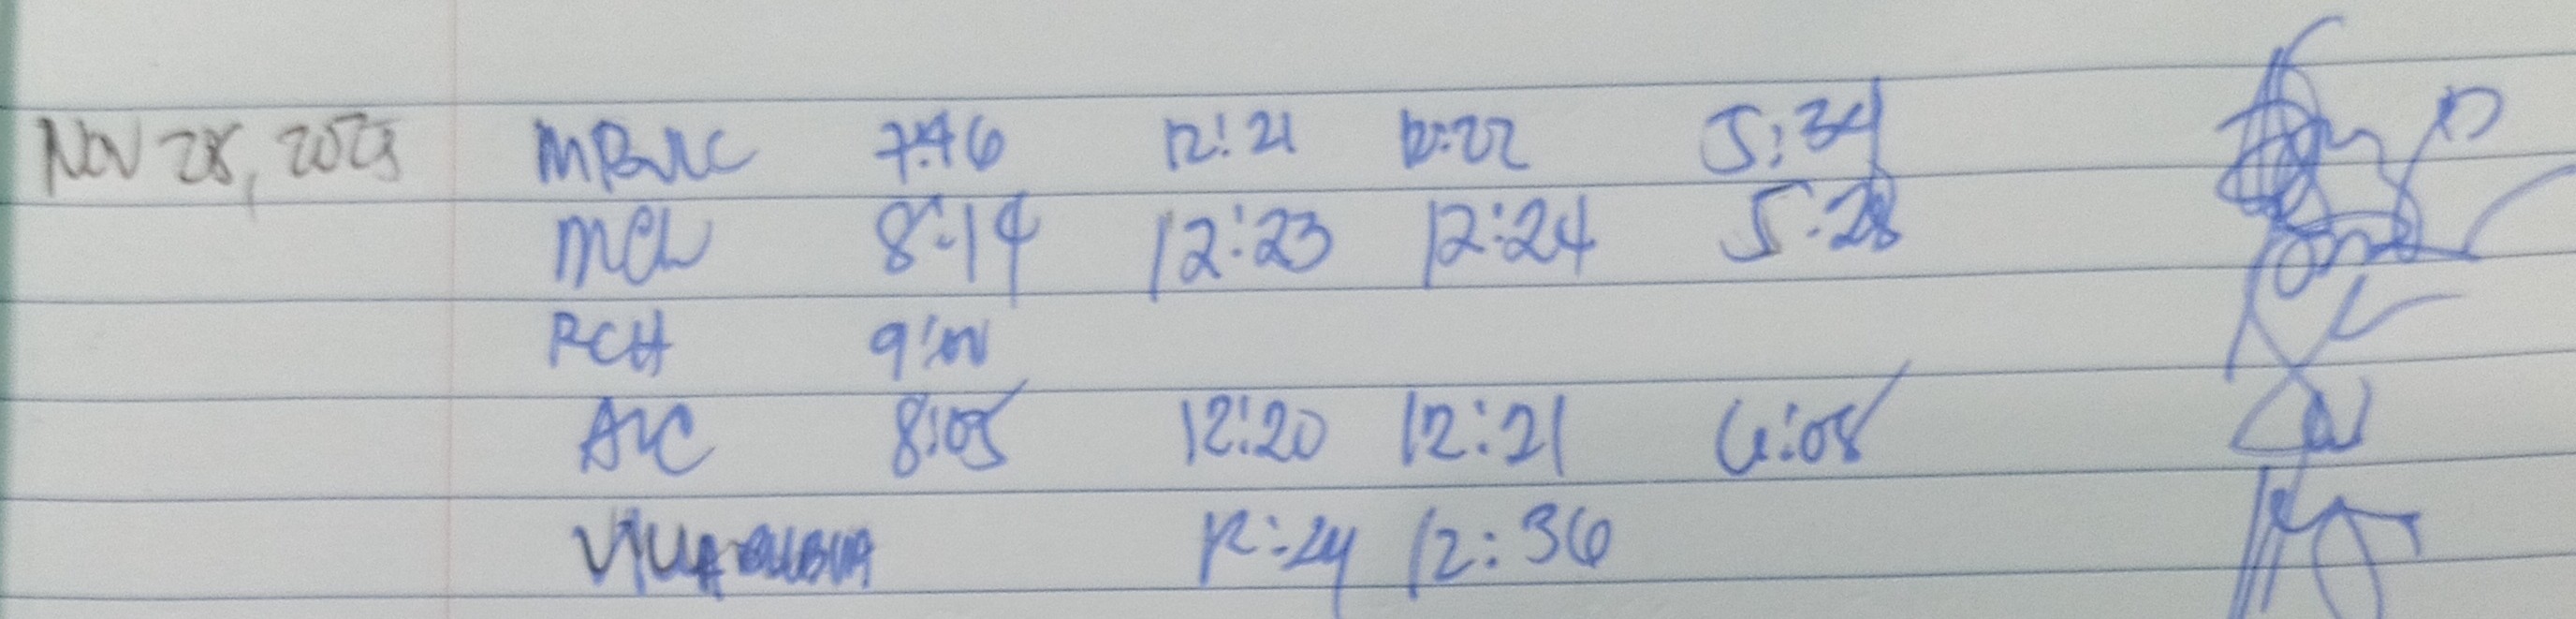 Nov 28, 2023 7:46 12:21 12:22 5:34
MCL 8:14 12:23 12:24 5:28
RCH 9:00
AVC 8:05 12:20 12:21 6:05
12:24 12:36